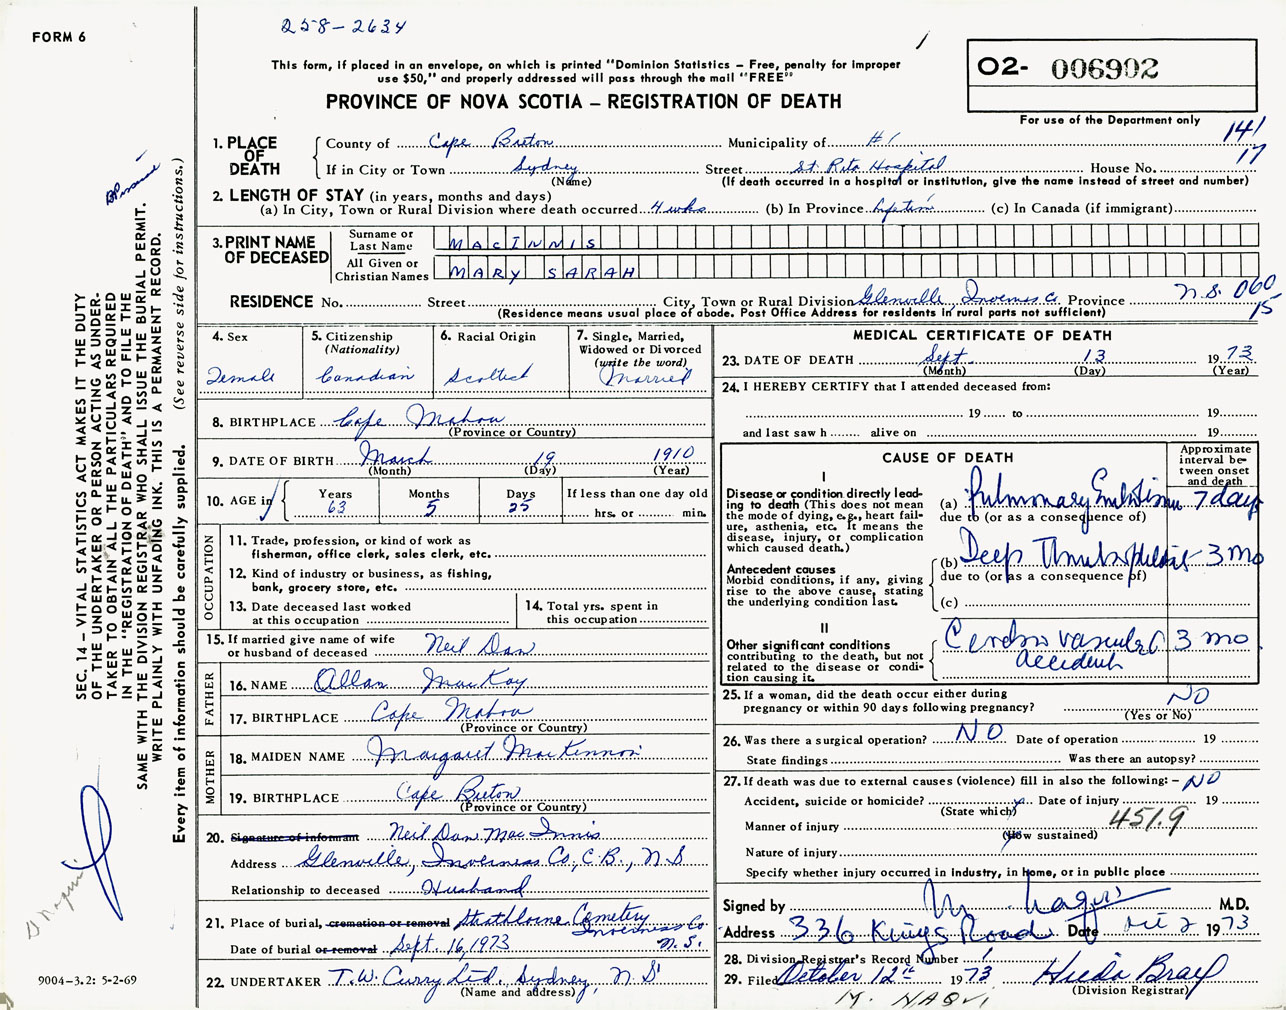 FORM 6
258-2634
This form, if placed in an envelope, on which is printed "Dominion Statistics – Free, penalty for improper
use $50," and properly addressed will pass through the mail "FREE"
PROVINCE OF NOVA SCOTIA – REGISTRATION OF DEATH
O2- 006902
For use of the Department only
141
17
1. PLACE OF DEATH
County of Cape Breton Municipality of #1
If in City or Town Sydney Street St. Rita Hospital House No.
(Name) (If death occurred in a hospital or institution, give the name instead of street and number)
2. LENGTH OF STAY (in years, months and days)
(a) In City, Town or Rural Division where death occurred 4 wks (b) In Province Lifetime (c) In Canada (if immigrant)
3. PRINT NAME OF DECEASED
Surname or Last Name MACINNIS
All Given or Christian Names MARY SARAH
RESIDENCE No. Street City, Town or Rural Division Glenville, Inverness Co. Province N.S. 060
15
(Residence means usual place of abode. Post Office Address for residents in rural parts not sufficient)
4. Sex
Female
5. Citizenship
(Nationality)
Canadian
6. Racial Origin
Scottish
7. Single, Married,
Widowed or Divorced
(write the word)
Married
8. BIRTHPLACE Cape Mabou
(Province or Country)
9. DATE OF BIRTH March 19 1910
(Month) (Day) (Year)
10. AGE in
Years Months Days If less than one day old
63 5 25 hrs. or min.
OCCUPATION
11. Trade, profession, or kind of work as
fisherman, office clerk, sales clerk, etc.
12. Kind of industry or business, as fishing,
bank, grocery store, etc.
13. Date deceased last worked
at this occupation
14. Total yrs. spent in
this occupation
15. If married give name of wife
or husband of deceased Neil Dan
FATHER
16. NAME Allan MacKay
17. BIRTHPLACE Cape Mabou
(Province or Country)
MOTHER
18. MAIDEN NAME Margaret MacKinnon
19. BIRTHPLACE Cape Breton
(Province or Country)
20. Signature of informant Neil Dan Mac Innis
Address Glenville, Inverness Co., C.B., N S
Relationship to deceased Husband
21. Place of burial, cremation or removal Strathlorne Cemetery
Inverness Co
N.S.
Date of burial or removal Sept. 16, 1973
22. UNDERTAKER T.W. Curry Ltd. Sydney, N S
(Name and address)
MEDICAL CERTIFICATE OF DEATH
23. DATE OF DEATH Sept 13 1973
(Month) (Day) (Year)
24. I HEREBY CERTIFY that I attended deceased from:
19 to 19
and last saw h alive on 19
CAUSE OF DEATH
Approximate
interval be-
tween onset
and death
I
Disease or condition directly lead-
ing to death (This does not mean
the mode of dying, e.g., heart fail-
ure, asthenia, etc. It means the
disease, injury, or complication
which caused death.)
(a) Pulmonary Embolism 7 days
due to (or as a consequence of)
Antecedent causes
Morbid conditions, if any, giving
rise to the above cause, stating
the underlying condition last.
(b) Deep Thrombophlebitis 3 mo
due to (or as a consequence of)
(c)
II
Other significant conditions
contributing to the death, but not
related to the disease or condi-
tion causing it.
Cerebro vascular 3 mo
accident
25. If a woman, did the death occur either during
pregnancy or within 90 days following pregnancy? NO
(Yes or No)
26. Was there a surgical operation? NO Date of operation 19
State findings Was there an autopsy?
27. If death was due to external causes (violence) fill in also the following: – NO
Accident, suicide or homicide? Date of injury 19
(State which)
Manner of injury 451.9
(How sustained)
Nature of injury
Specify whether injury occurred in industry, in home, or in public place
Signed by M. Naqvi M.D.
Address 336 Kings Road Date Oct 2 1973
28. Division Registrar's Record Number
29. Filed October 12th 1973 Hilda Bray
(Division Registrar)
M. NAQVI
SEC. 14 – VITAL STATISTICS ACT MAKES IT THE DUTY
OF THE UNDERTAKER OR PERSON ACTING AS UNDER-
TAKER TO OBTAIN ALL THE PARTICULARS REQUIRED
IN THE "REGISTRATION OF DEATH" AND TO FILE THE
SAME WITH THE DIVISION REGISTRAR WHO SHALL ISSUE THE BURIAL PERMIT.
WRITE PLAINLY WITH UNFADING INK. THIS IS A PERMANENT RECORD.
Every item of information should be carefully supplied. (See reverse side for instructions.)
9004-3.2: 5-2-69